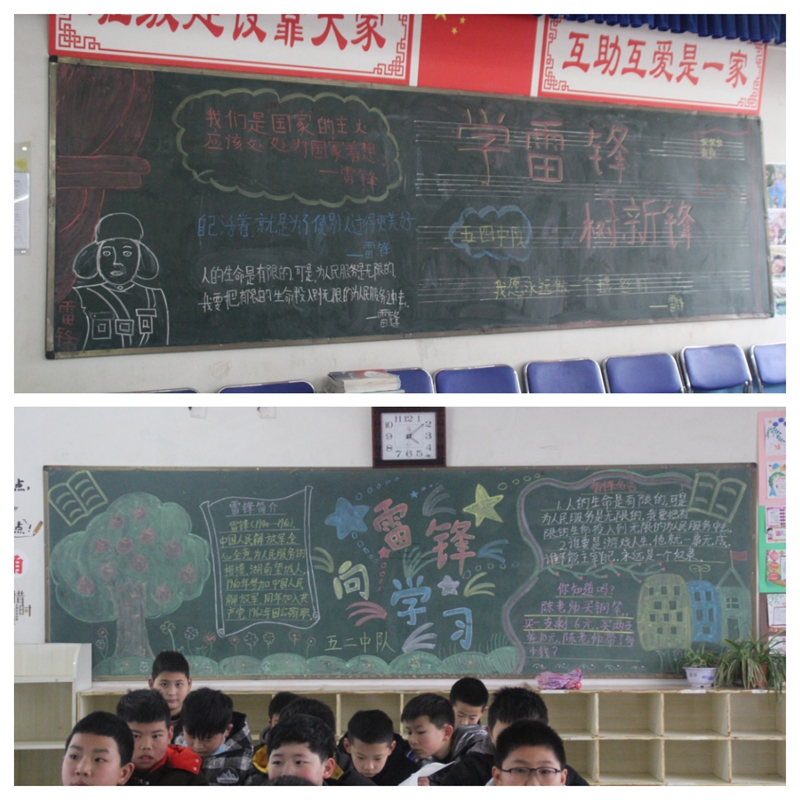 班级建设靠大家
互助互爱是一家
我们是国家的主人
应该处处为国家着想
—雷锋
自己活着,就是为了使别人过得更美好
—雷锋
人的生命是有限的,可是,为人民服务是无限的
我要把有限的生命投入到无限的为人民服务之中去。
—雷锋
雷锋
学雷锋
树新锋
五四中队
我愿永远做一个螺丝钉
—雷锋
雷锋简介
雷锋(1940-1962)
中国人民解放军全
心全意为人民服务的
楷模,湖南望城人,
1960年参加中国人民
解放军,同年加入共
产党,1962年
雷锋
向
学习
五二中队
1.人的生命是有限的,可是
为人民服务是无限的,我要把有
限的生命,投入到无限的为人民服务中去
2.谁要是游戏人生,他就一事无成,
谁不能主宰自己,永远是一个奴隶
你知道吗?
陈老师买钢笔,
买一支剩6元,买两支
多少钱?